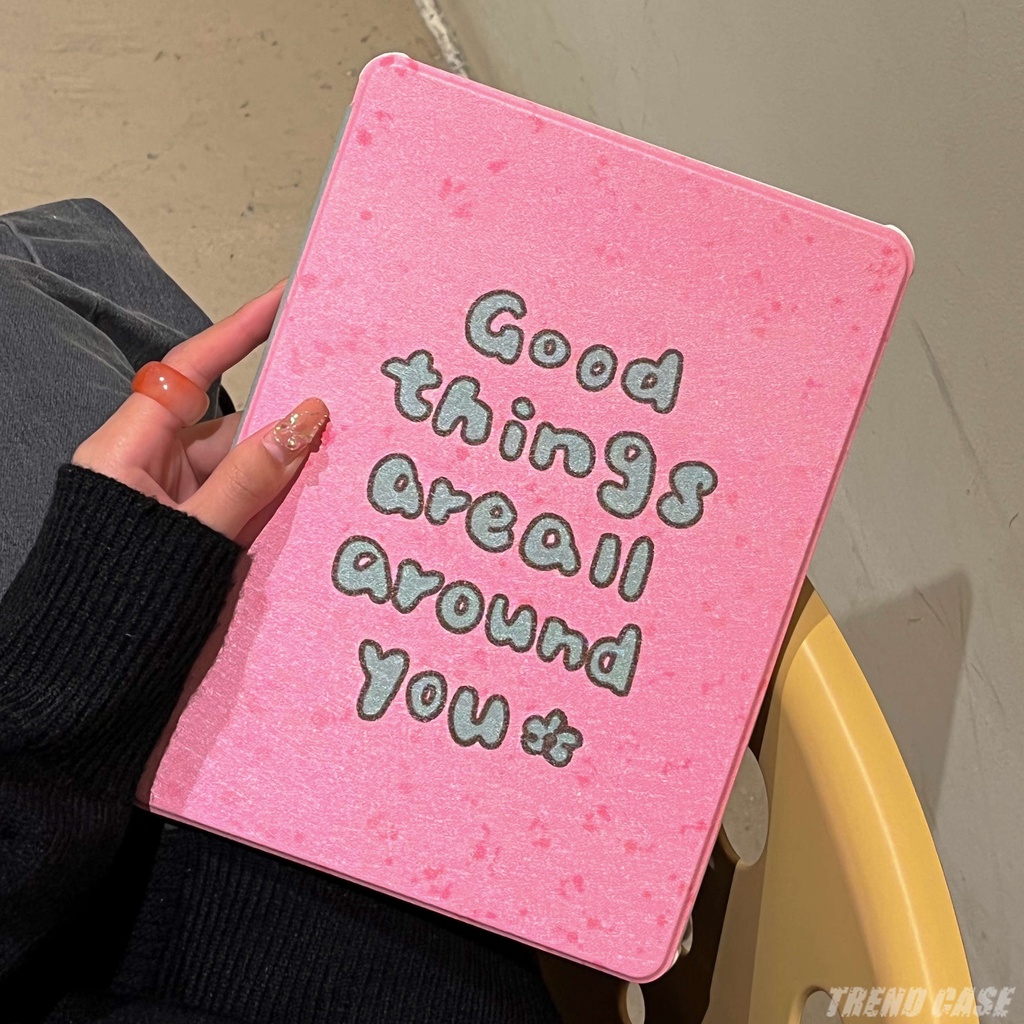 Good
things
areall
around
you
TREND CASE